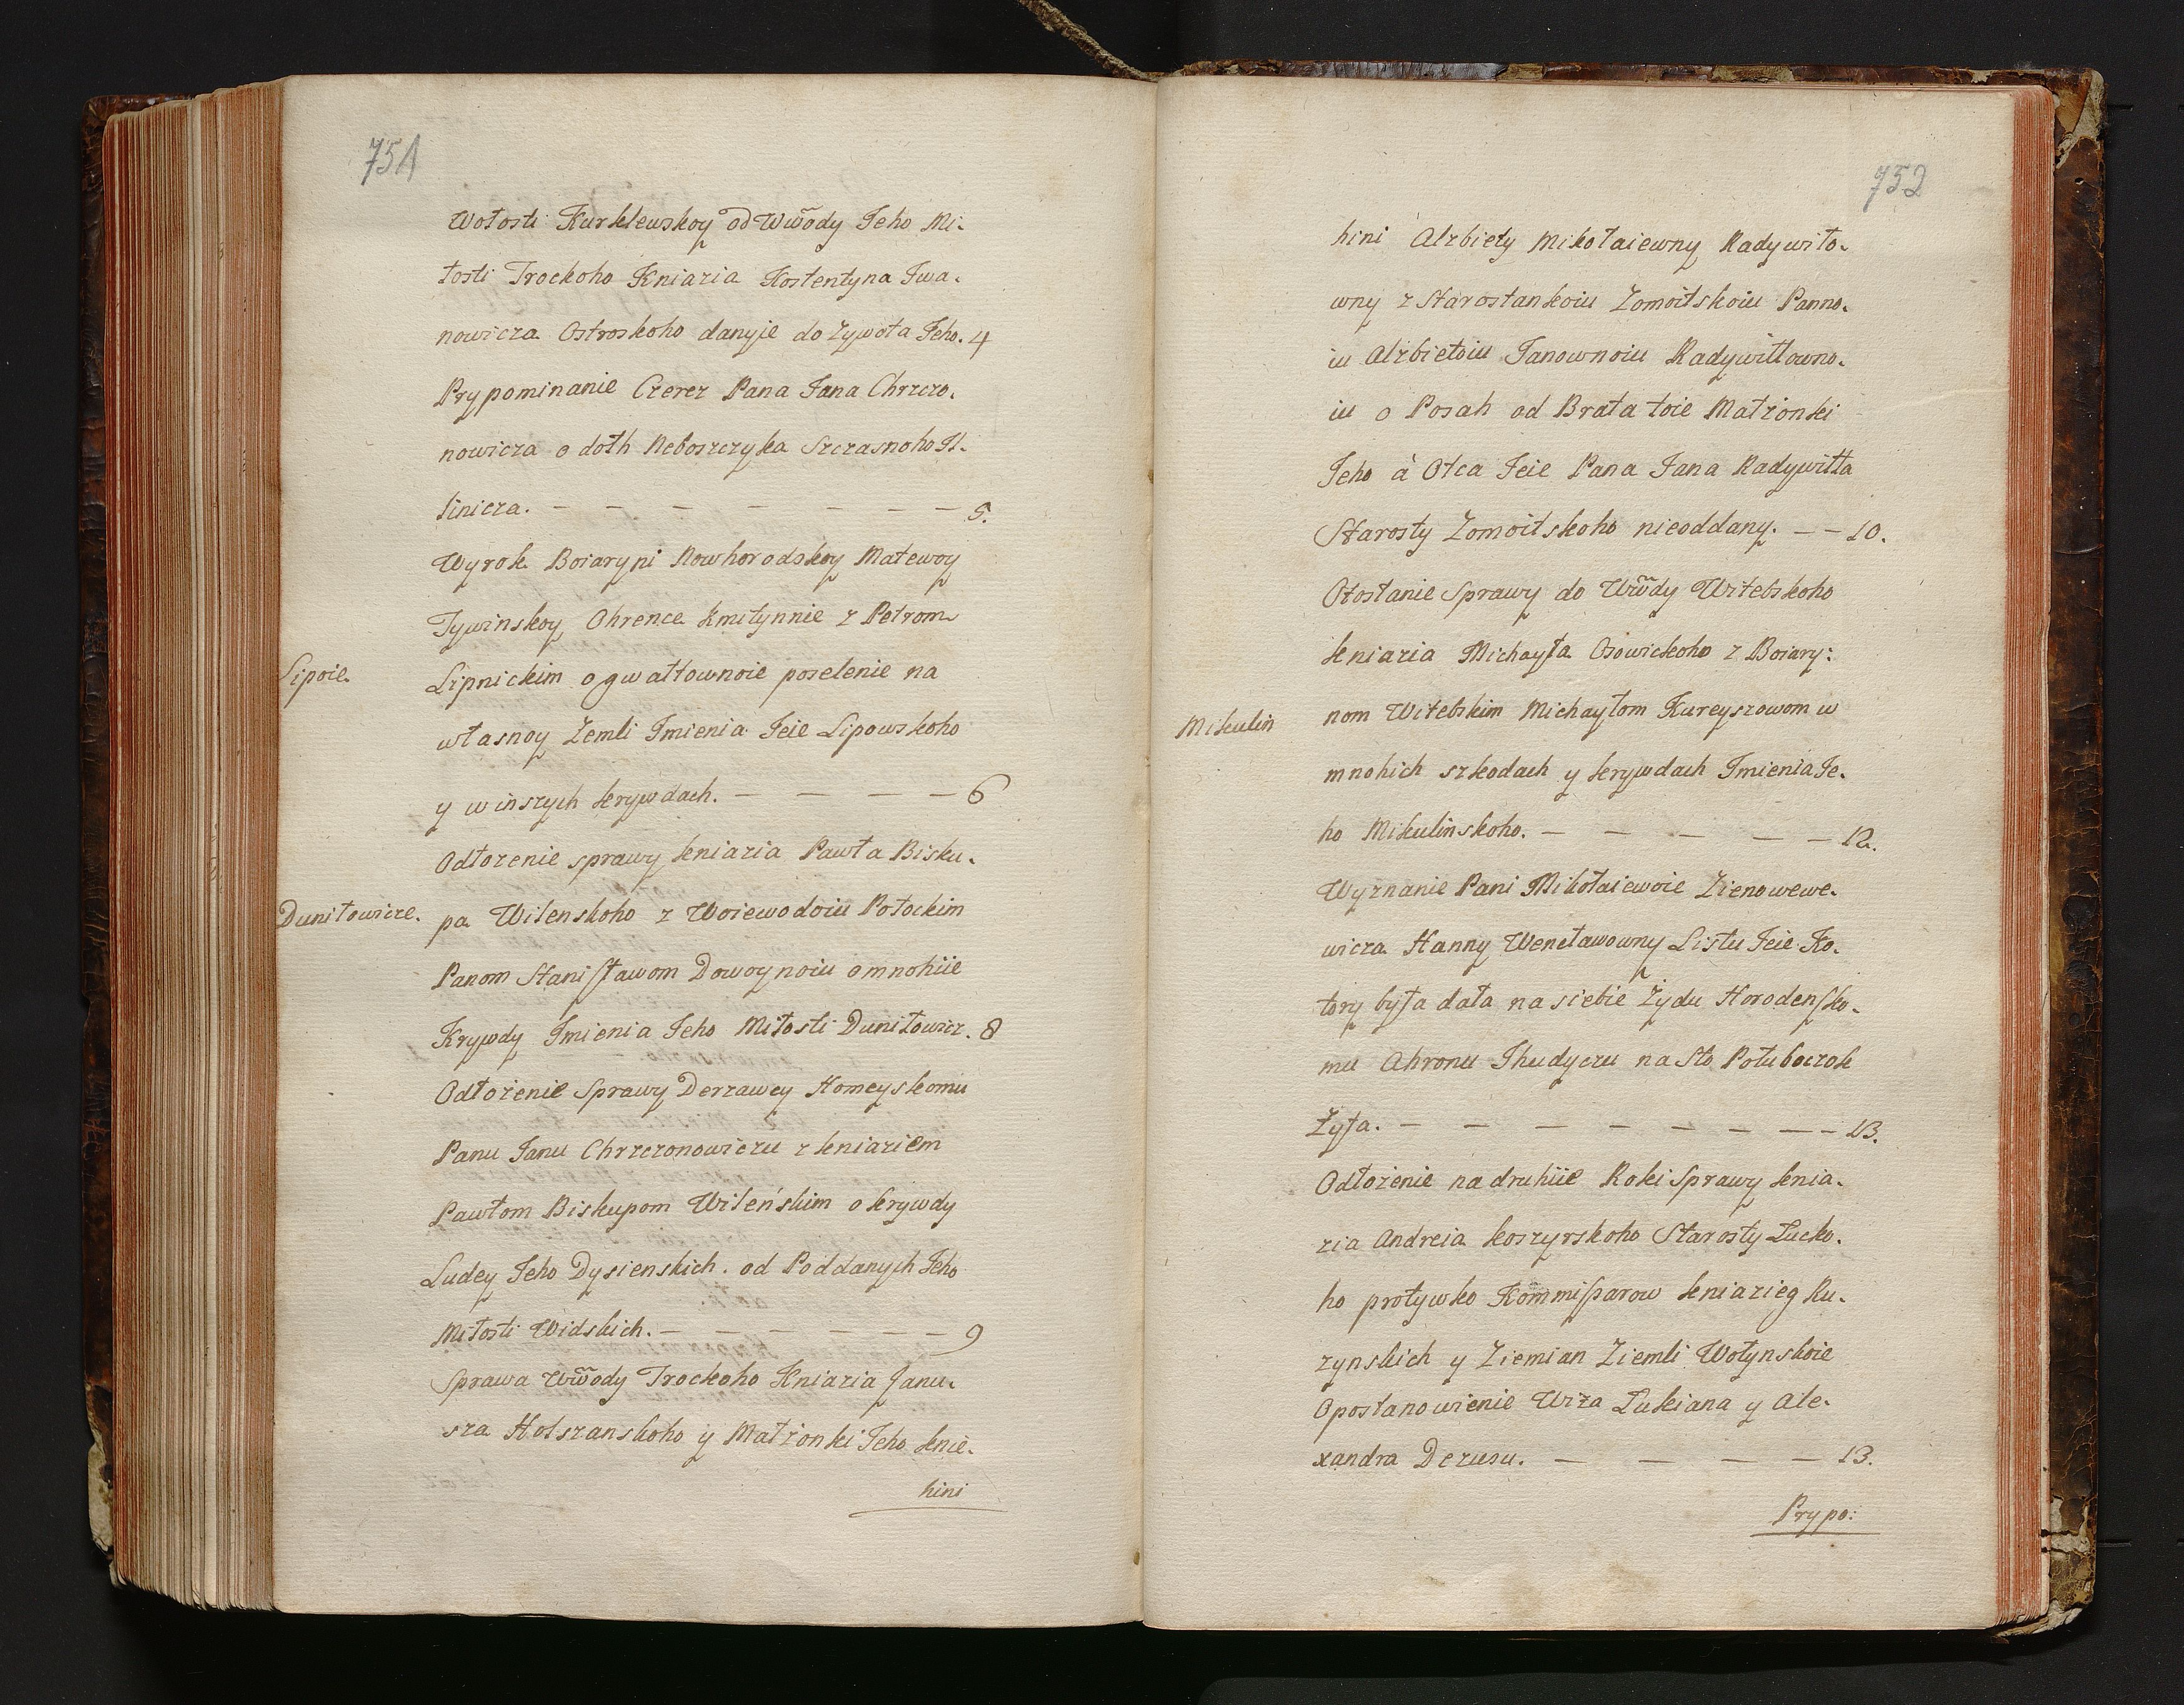 751
Wołosti Kurklewskoy od Wwody Jeho Mi-
łosti Trockoho Kniazia Kostentyna Jwa-
nowicza Ostroskoho danyje do zywota Jeho. 4
Prypominanie Czerez Pana Jana Chrzczo-
nowicza o dołh Neboszczyka Szczasnoho Jl-
linicza. — — — — — — — 5.
Wyrok Boiaryni Nowhorodskoy Matewoy
Tywinskoy Ohrence kmitynnie z Petrom
Lipoie. Lipnickim o gwałtownoie poselenie na
własnoy Zemli Jmienia Jeie Lipowskoho
y w inszych krywdach. — — — — 6
Odłozenie sprawy kniazia Pawła Bisku-
Duniłowicze. pa Wilenskoho z Woiewodoiu Połockim
Panom Stanisławom Dowoynoiu o mnohiie
Krywdy Jmienia Jeho Miłosti Duniłowicz. 8
Odłożenie Sprawy Derzawcy Homeyskomu
Panu Janu Chrzczonowiczu z kniaziem
Pawłom Biskupom Wileńskim o krywdy
Ludey Jeho Dysienskich. od Poddanych Jeho
Miłosti Widskich. — — — — — — 9
Sprawa Wwody Trockoho Kniazia Janu-
sza Holszanskoho y Małżonki Jeho knie-
hini
752
hini Alzbiety Mikołaiewny Radywiło-
wny z Starostankoiu Zomoitskoiu Panno-
iu Alzbietoiu Janownoiu Radywiłłowno-
iu o Posah od Brata toie Małżonki
Jeho à Otca Jeie Pana Jana Radywiłła
Starosty Zomoitskoho nieoddany. — — 10.
Otosłanie Sprawy do Wwdy Witebskoho
kniazia Michayła Osowickoho z Boiary:
nom Witebskim Michayłom Kureyszowom w
Mikulin mnohich szkodach y krywdach Jmienia Je-
ho Mikulinskoho. — — — — — 12.
Wyznanie Pani Mikołaiewoie Zienowewe-
wicza Hanny Wencławowny Listu Jeie Ko-
tory była dała na siebie Żydu Horodensko-
mu Ahronu Jhudyczu na Sto Połuboczok
Żyta. — — — — — — — — 13.
Odłożenie na druhiie Roki Sprawy knia-
zia Andreia koszyrskoho Starosty Łucko-
ho protywko Kommissarow kniazieg Ru-
zynskich y Ziemian Ziemli Wołynskoie
O postanowienie Wiza Łukiana y Ale-
xandra Dezusu. — — — — 13.
Prypo: